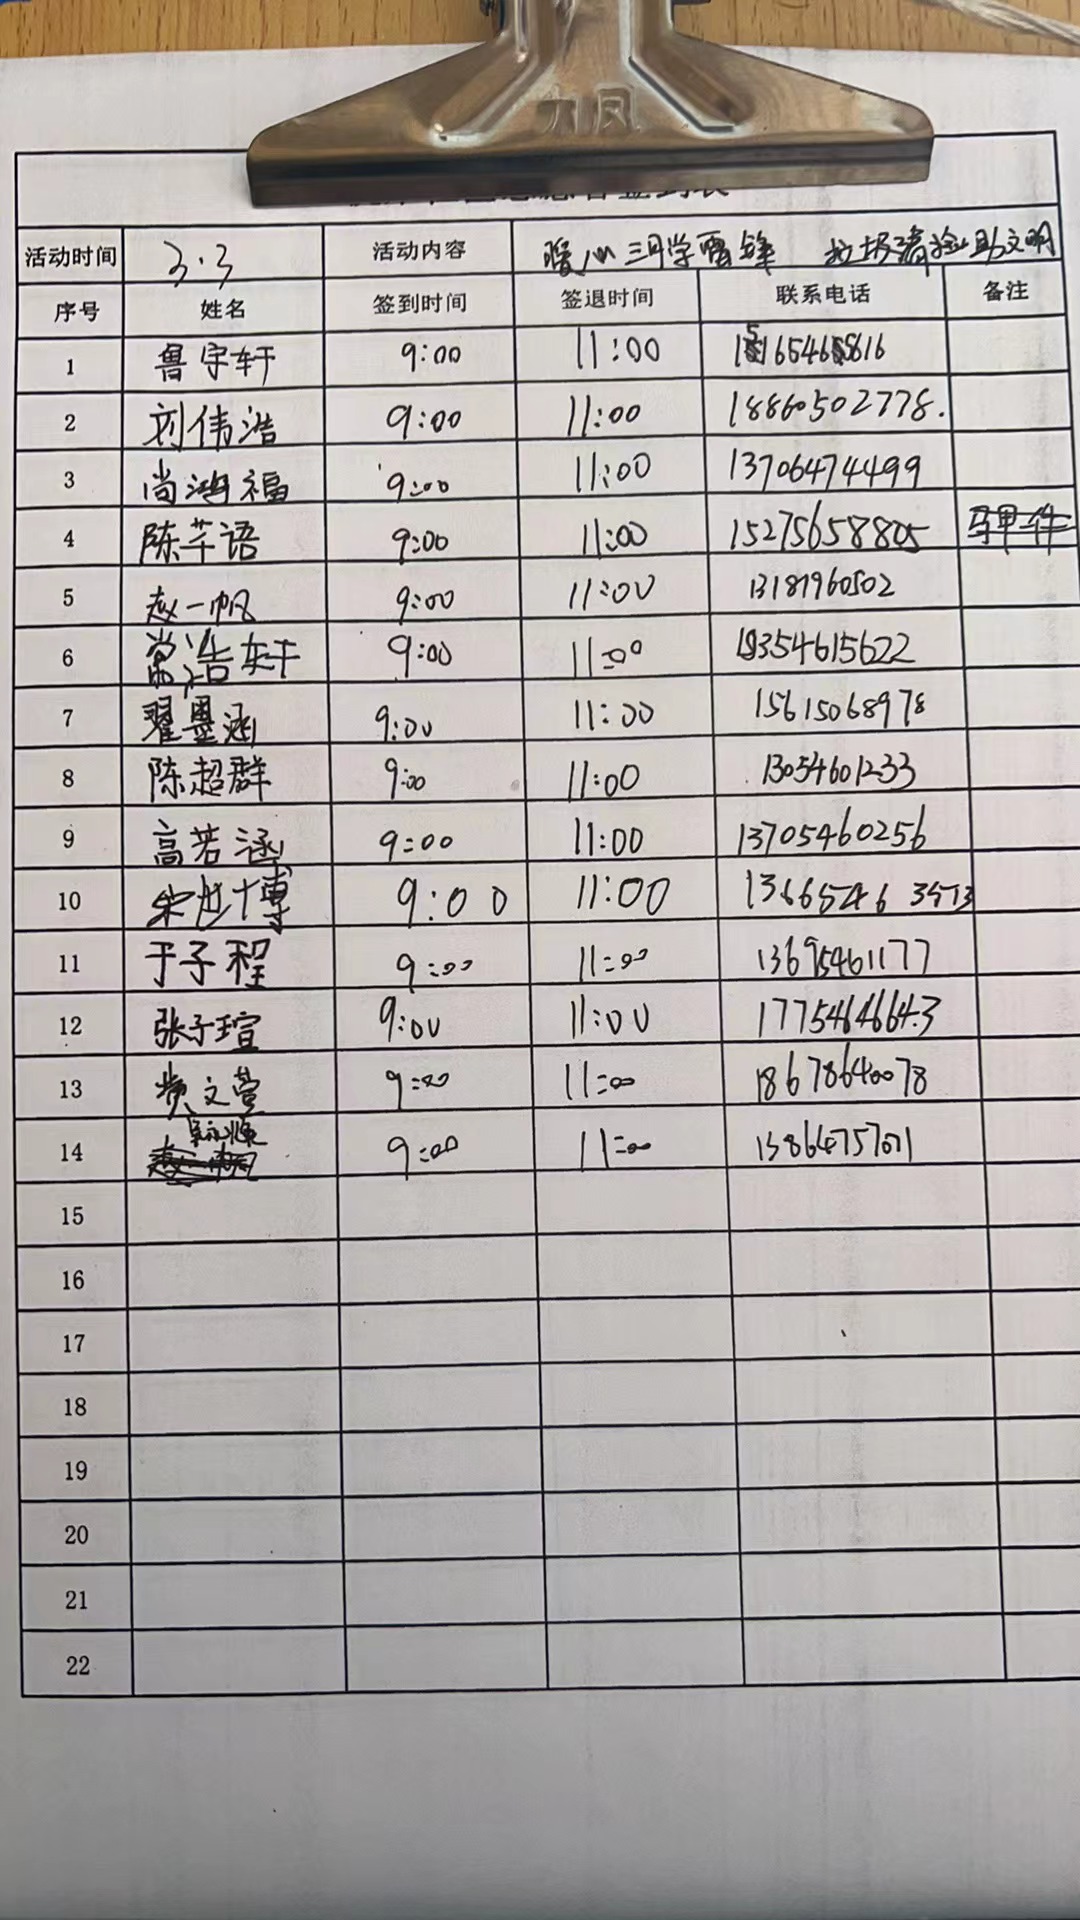 力凤
活动时间 3.3 活动内容 暖心三月学雷锋 垃圾清捡助文明
序号 姓名 签到时间 签退时间 联系电话 备注
1 鲁宇轩 9:00 11:00
2 刘伟浩 9:00 11:00 18860502778.
3 尚鸿福 9:00 11:00 13706474499
4 陈芊语 9:00 11:00 15275658805 马甲一件
5 赵一帆 9:00 11:00 13181960502
6 常浩轩 9:00 11:00 19354615622
7 翟墨涵 9:00 11:00 15615068978
8 陈超群 9:00 11:00 13054601233
9 高若涵 9:00 11:00 13705460256
10 宋世博 9:00 11:00 13665246 3573
11 于子程 9:00 11:00 13695461177
12 张子瑄 9:00 11:00 17754646643
13 黄文萱 9:00 11:00 18678640078
14 9:00 11:00 13864757071
15
16
17
18
19
20
21
22